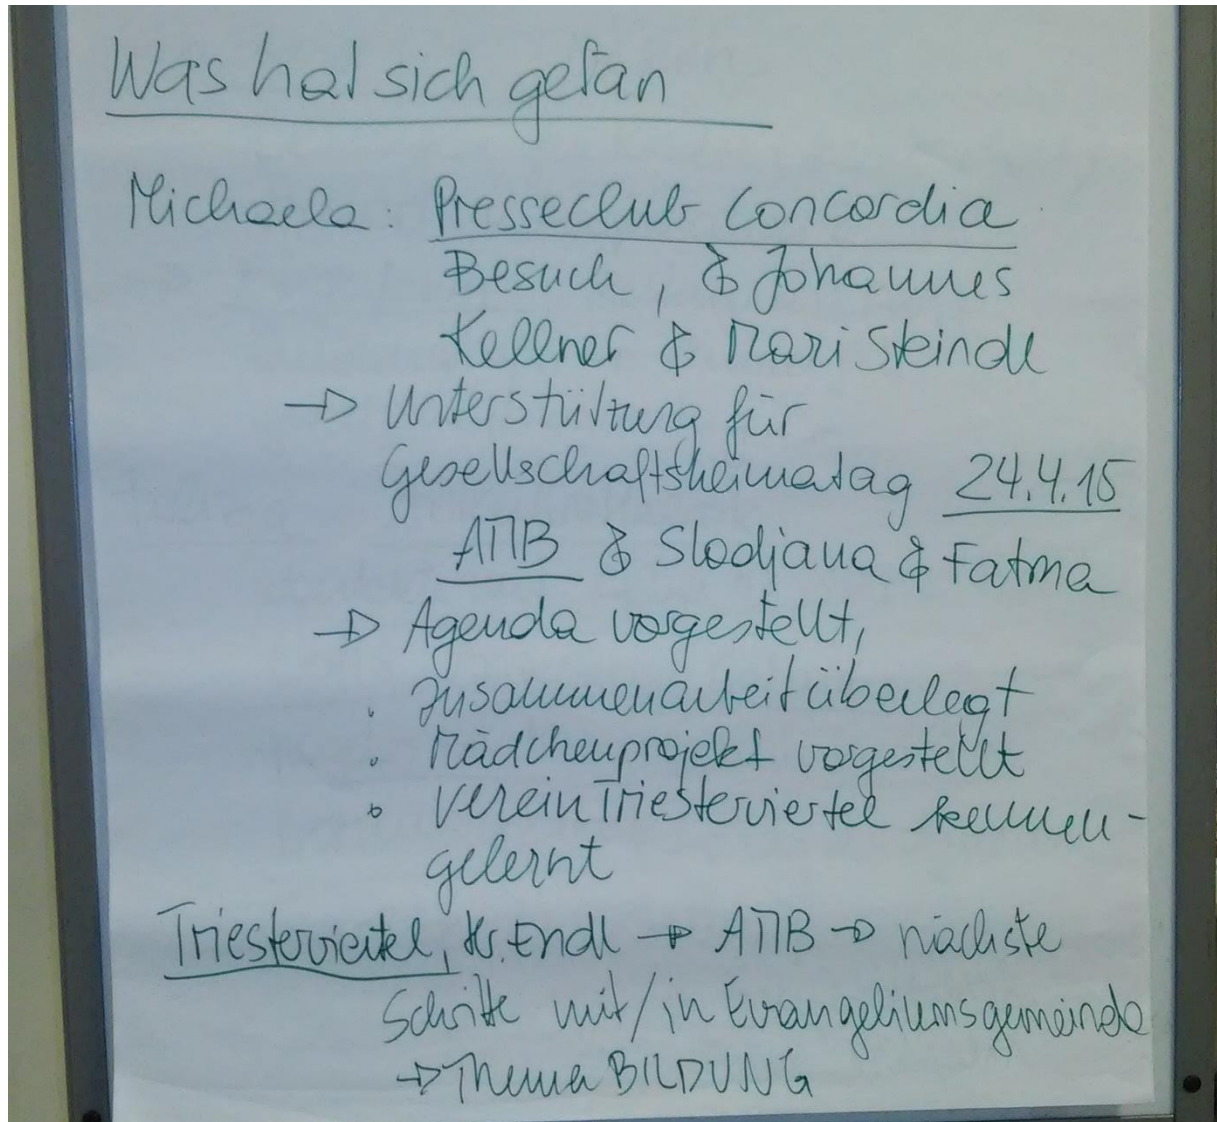 Was hat sich getan
Michaela: Presseclub Concordia
Besuch, & Johannes
Kellner & Mari Steindl
→ Unterstützung für
Gesellschaftsheimatag 24.4.15
AMB & Slodjana & Fatma
→ Agenda vorgestellt,
. Zusammenarbeit überlegt
. Mädchenprojekt vorgestellt
∘ Verein Triesterviertel kennen-
gelernt
Triesterviertel, Hr. Endl → AMB → nächste
Schritte mit/in Evangeliumsgemeinde
→ Thema BILDUNG